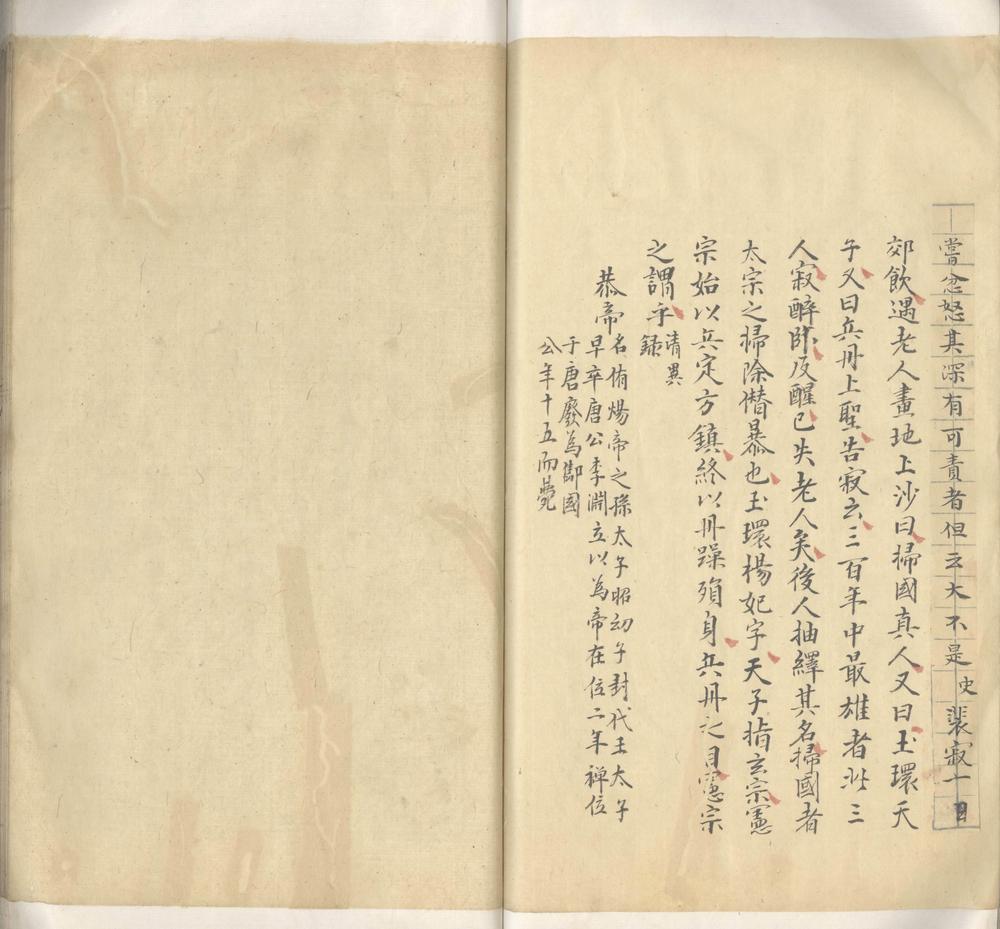 嘗忿怒其深有可責者但云大不是史裴寂一日
郊飲遇老人畫地上沙曰掃國真人又曰玉環天
子又曰兵丹上聖告寂云三百年中最雄者此三
人寂醉卧及醒已失老人矣後人抽繹其名掃國者
太宗之掃除僭暴也玉環楊妃字天子指玄宗憲
宗始以兵定方鎮終以丹躁殞身兵丹之目憲宗
之謂乎清異
錄
恭帝名侑煬帝之孫太子昭幼子封代王太子
早卒唐公李淵立以為帝在位二年禅位
于唐廢為酅國
公年十五而薨